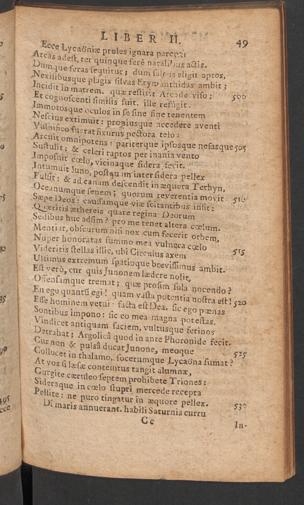 LIBER II. 49
Ecce Lycaoniæ proles ignara parentis
Arcas adest, ter quinque ferè natalibus actis.
Dumque feras sequitur; dum saltus eligit aptos,
Nexilibusque plagis silvas Erymanthidas ambit;
Incidit in matrem. quæ restitit Arcade viso: 500
Et cognoscenti similis fuit. ille refugit.
Immotosque oculos in se sine fine tenentem
Nescius extimuit: propiusque accedere aventi
Vulnifico fuerat fixurus pectora telo:
Arcuit omnipotens: pariterque ipsosque nefasque 505
Sustulit; & celeri raptos per inania vento
Imposuit cœlo, vicinaque sidera fecit.
Intumuit Juno, postquam inter sidera pellex
Fulsit; & ad canam descendit in æquora Tethyn,
Oceanumque senem; quorum reverentia movit 510
Sæpe Deos: caussamque viæ scitantibus infit:
Quæritis æthereis quare regina Deorum
Sedibus huc adsim? pro me tenet altera cœlum.
Mentiar, obscurum nisi nox cum fecerit orbem,
Nuper honoratas summo mea vulnera cœlo
Videritis stellas illic, ubi Circulus axem 515
Ultimus extremum spatioque brevissimus ambit.
Est verò, cur quis Junonem lædere nolit,
Offensamque tremat; quæ prosim sola nocendo?
En ego quantū egi! quam vasta potentia nostra est! 520
Esse hominem vetui: facta est Dea. sic ego pœnas
Sontibus impono: sic eo mea magna potestas.
Vindicet antiquam faciem, vultusque ferinos
Detrahat; Argolicâ quod in ante Phoronide fecit.
Cur non & pulsâ ducat Junone, meoque 525
Collocet in thalamo, socerumque Lycaona sumat?
At vos si læsæ contemtus tangit alumnæ,
Gurgite cæruleo septem prohibete Triones:
Sideraque in cœlo stupri mercede recepta
Pellite: ne puro tingatur in æquore pellex. 530
Di maris annuerant. habili Saturnia curru
In-